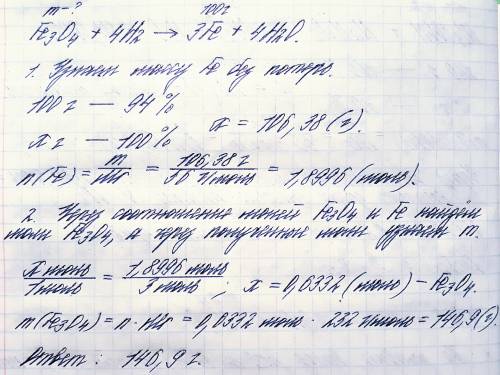 m-?
100г
Fe₃O₄ + 4H₂ → 3Fe + 4H₂O.
1. Узнаем массу Fe без потерь.
100 г — 94 %
x г — 100 %
x = 106,38 (г).
n(Fe) = m/M = 106,38 г/56 г/моль = 1,8996 (моль).
2. Через соотношение молей Fe₃O₄ и Fe найдём
моли Fe₃O₄, а через полученные моли узнаем m.
x моль/1 моль = 1,8996 моль/3 моль ; x = 0,6332 (моль) - Fe₃O₄.
m(Fe₃O₄) = n · M = 0,6332 моль · 232 г/моль = 146,9 (г)
Ответ : 146,9 г.